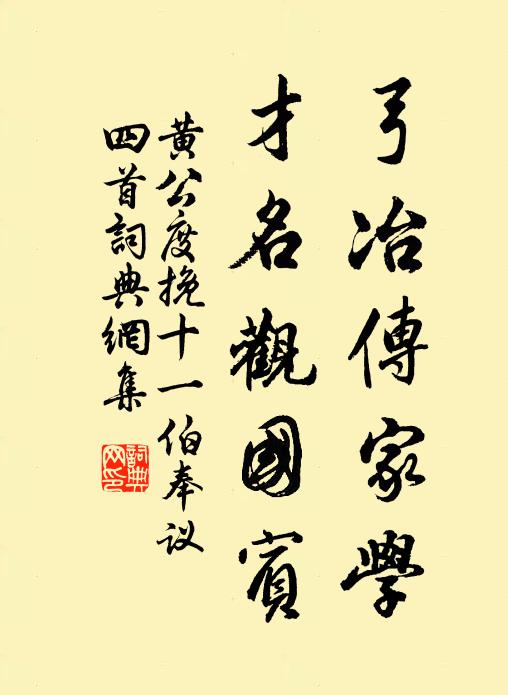 弓冶傳家學
才名觀國賓
黄公度挽十一伯奉议
四首詞典網集
詞典网印